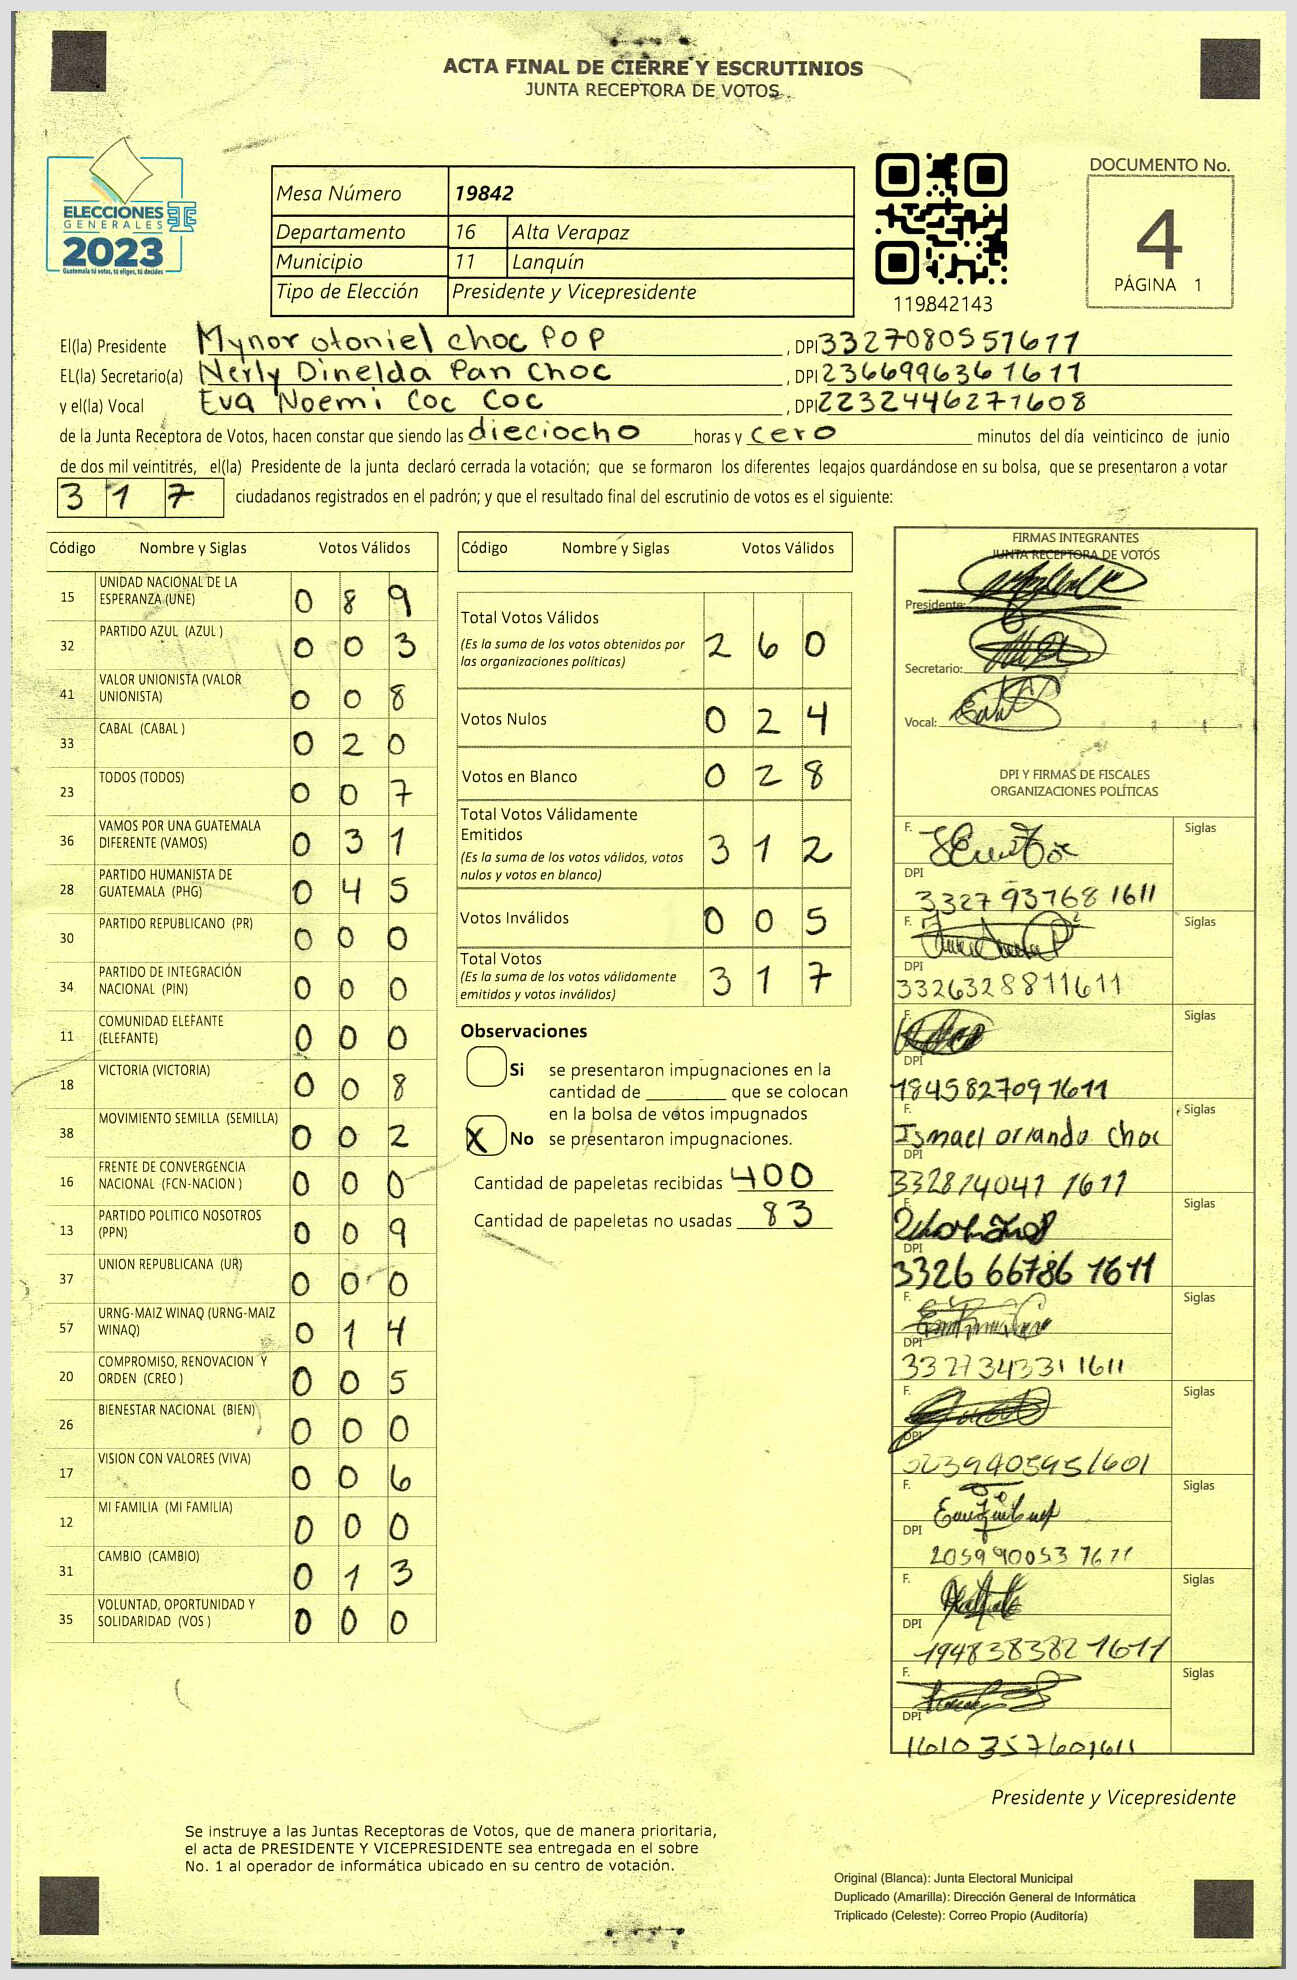 ACTA FINAL DE CIERRE Y ESCRUTINIOS
JUNTA RECEPTORA DE VOTOS
ELECCIONES
GENERALES
2023
Guatemala tú votas, tú eliges, tú decides
Mesa Número 19842
Departamento 16 Alta Verapaz
Municipio 11 Lanquín
Tipo de Elección Presidente y Vicepresidente
119842143
DOCUMENTO No.
4
PÁGINA 1
El(la) Presidente Mynor otoniel choc POP , DPI 3327080551611
EL(la) Secretario(a) Nerly Dinelda Pan Choc , DPI 2366996361611
y el(la) Vocal Eva Noemi Coc Coc , DPI 2232446271608
de la Junta Receptora de Votos, hacen constar que siendo las dieciocho horas y cero minutos del día veinticinco de junio
de dos mil veintitrés, el(la) Presidente de la junta declaró cerrada la votación; que se formaron los diferentes legajos guardándose en su bolsa, que se presentaron a votar
317 ciudadanos registrados en el padrón; y que el resultado final del escrutinio de votos es el siguiente:
Código Nombre y Siglas Votos Válidos
15 UNIDAD NACIONAL DE LA ESPERANZA (UNE) 0 8 9
32 PARTIDO AZUL (AZUL ) 0 0 3
41 VALOR UNIONISTA (VALOR UNIONISTA) 0 0 8
33 CABAL (CABAL ) 0 2 0
23 TODOS (TODOS) 0 0 7
36 VAMOS POR UNA GUATEMALA DIFERENTE (VAMOS) 0 3 1
28 PARTIDO HUMANISTA DE GUATEMALA (PHG) 0 4 5
30 PARTIDO REPUBLICANO (PR) 0 0 0
34 PARTIDO DE INTEGRACIÓN NACIONAL (PIN) 0 0 0
11 COMUNIDAD ELEFANTE (ELEFANTE) 0 0 0
18 VICTORIA (VICTORIA) 0 0 8
38 MOVIMIENTO SEMILLA (SEMILLA) 0 0 2
16 FRENTE DE CONVERGENCIA NACIONAL (FCN-NACION ) 0 0 0
13 PARTIDO POLITICO NOSOTROS (PPN) 0 0 9
37 UNION REPUBLICANA (UR) 0 0 0
57 URNG-MAIZ WINAQ (URNG-MAIZ WINAQ) 0 1 4
20 COMPROMISO, RENOVACION Y ORDEN (CREO ) 0 0 5
26 BIENESTAR NACIONAL (BIEN) 0 0 0
17 VISION CON VALORES (VIVA) 0 0 6
12 MI FAMILIA (MI FAMILIA) 0 0 0
31 CAMBIO (CAMBIO) 0 1 3
35 VOLUNTAD, OPORTUNIDAD Y SOLIDARIDAD (VOS ) 0 0 0
Código Nombre y Siglas Votos Válidos
Total Votos Válidos 2 6 0
(Es la suma de los votos obtenidos por
las organizaciones políticas)
Votos Nulos 0 2 4
Votos en Blanco 0 2 8
Total Votos Válidamente
Emitidos 3 1 2
(Es la suma de los votos válidos, votos
nulos y votos en blanco)
Votos Inválidos 0 0 5
Total Votos 3 1 7
(Es la suma de los votos válidamente
emitidos y votos inválidos)
Observaciones
Si se presentaron impugnaciones en la
cantidad de ________ que se colocan
en la bolsa de votos impugnados
X No se presentaron impugnaciones.
Cantidad de papeletas recibidas 400
Cantidad de papeletas no usadas 83
FIRMAS INTEGRANTES
JUNTA RECEPTORA DE VOTOS
Presidente:
Secretario:
Vocal:
DPI Y FIRMAS DE FISCALES
ORGANIZACIONES POLÍTICAS
F. Siglas
DPI
3327 93768 1611
F. Siglas
DPI
3326328811611
F. Siglas
DPI
1845827091611
F. Ismael orlando choc Siglas
DPI
332814041 1611
F. Siglas
DPI
3326 66786 1611
F. Siglas
DPI
332734331 1611
F. Siglas
DPI
F. Siglas
DPI
205990053 1611
F. Siglas
DPI
194838382 1611
F. Siglas
DPI
1610357601611
Presidente y Vicepresidente
Se instruye a las Juntas Receptoras de Votos, que de manera prioritaria,
el acta de PRESIDENTE Y VICEPRESIDENTE sea entregada en el sobre
No. 1 al operador de informática ubicado en su centro de votación.
Original (Blanca): Junta Electoral Municipal
Duplicado (Amarilla): Dirección General de Informática
Triplicado (Celeste): Correo Propio (Auditoría)